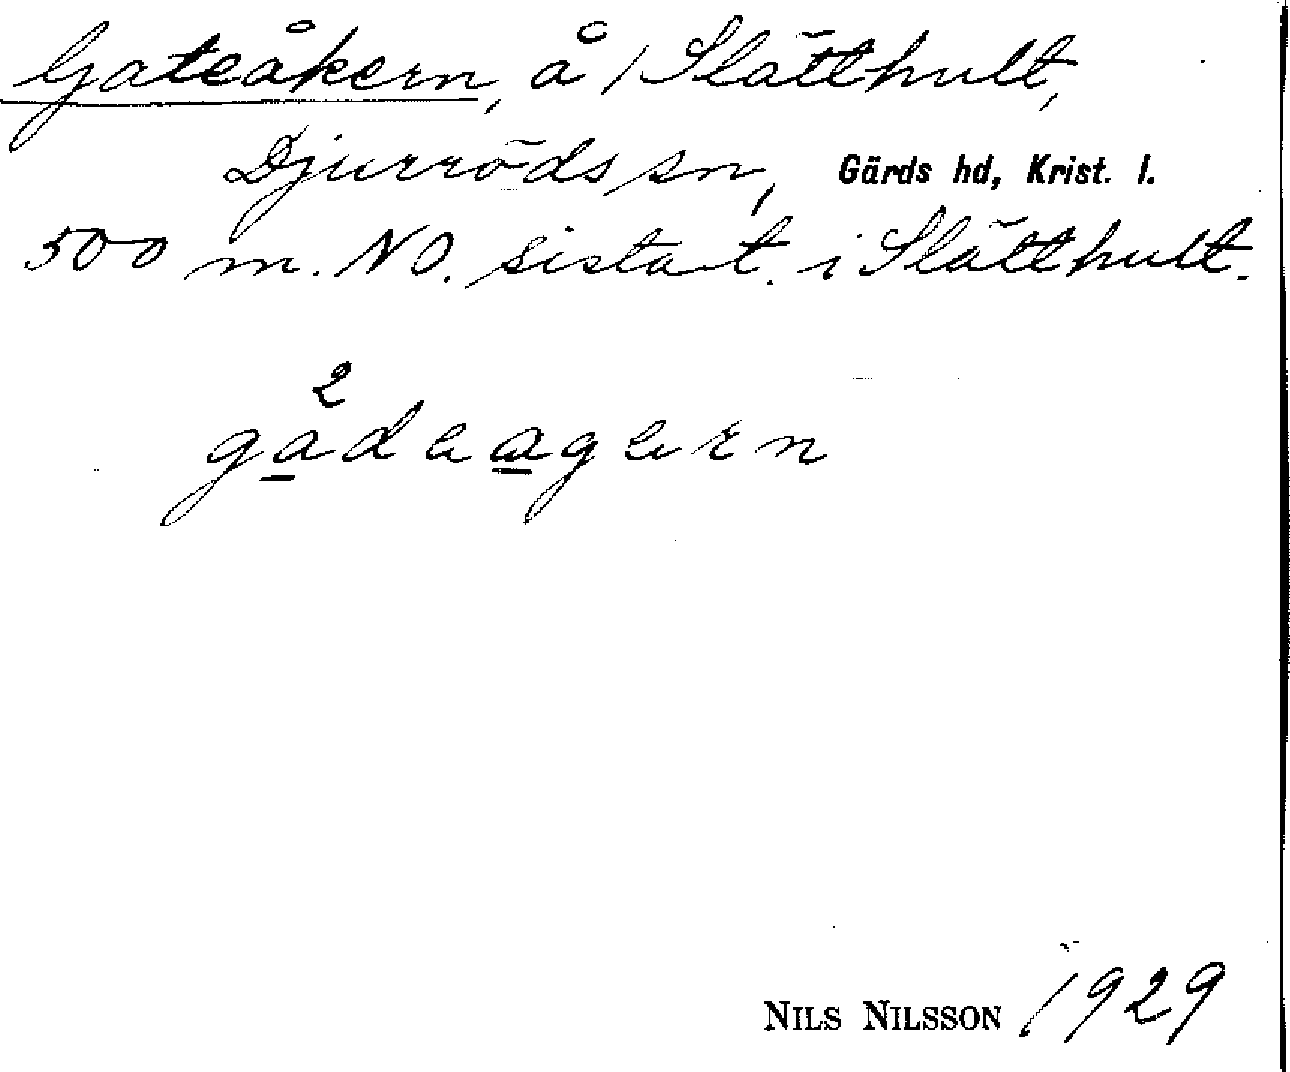 Gateåkern, å / Slätthult,
Djurröds sn, Gärds hd, Krist. l.
500 m. NO. sista t. i Slätthult.
2
gadeagern
NILS NILSSON 1929